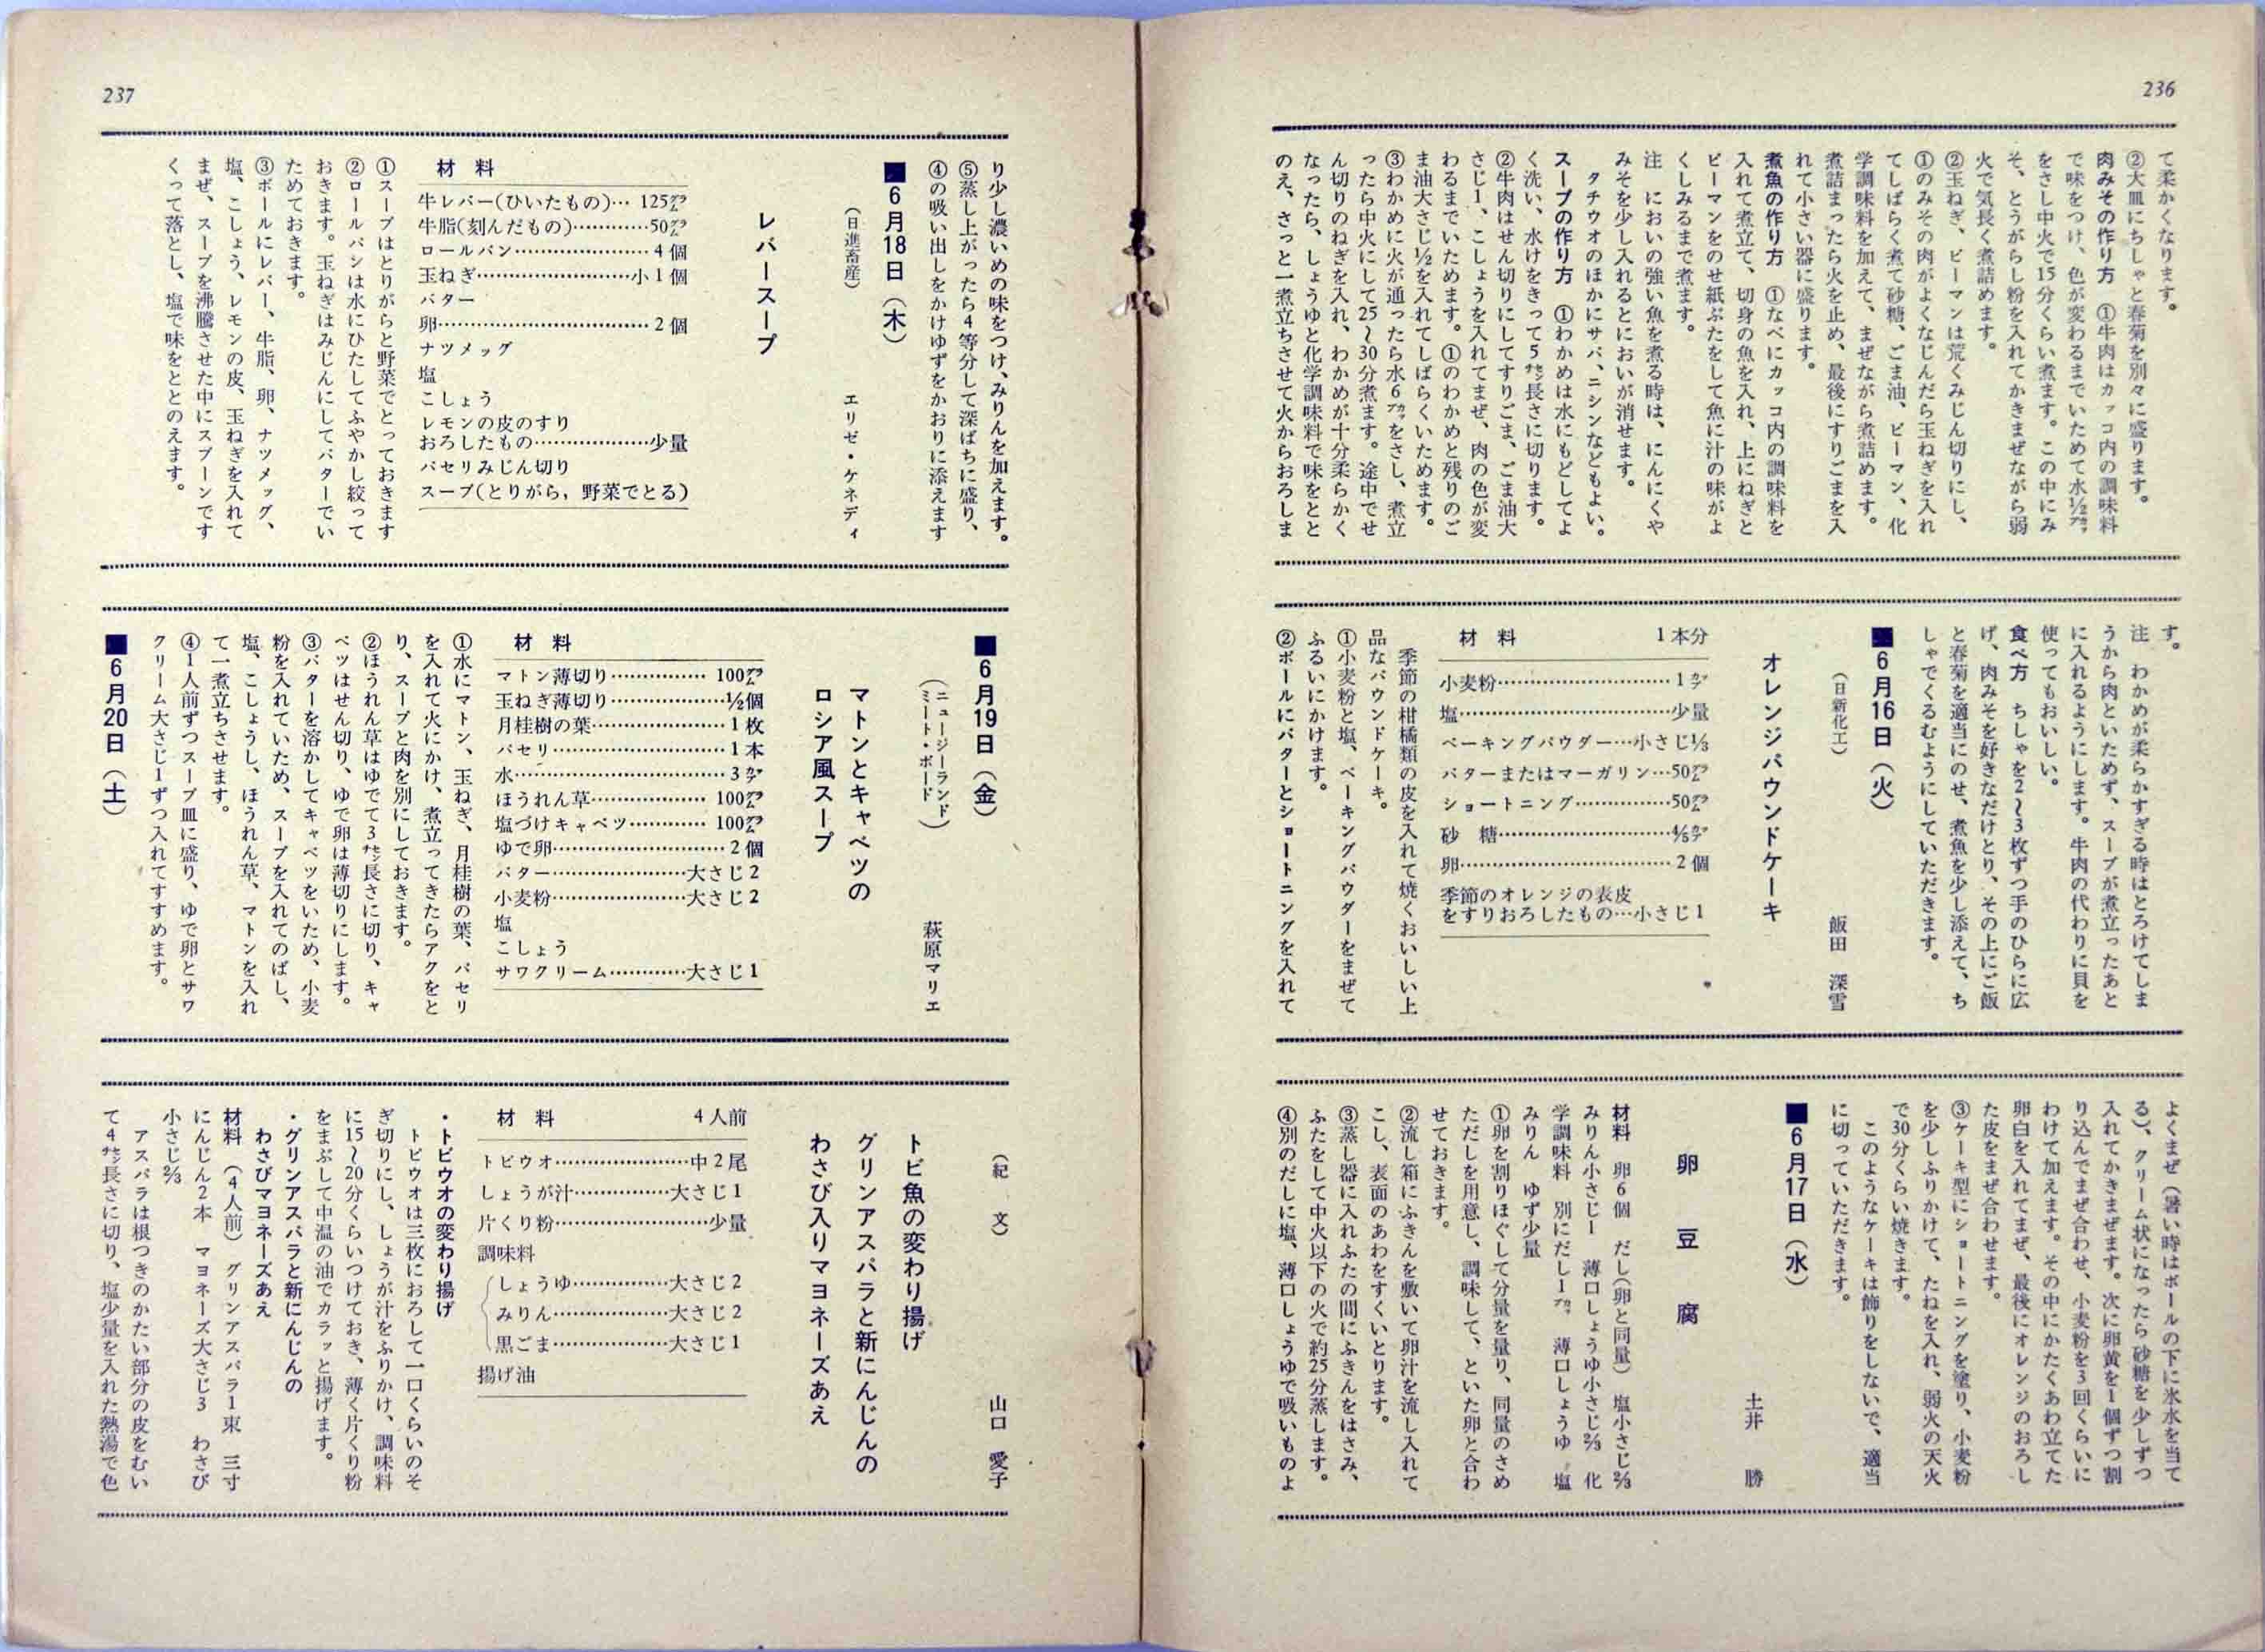 236
て柔かくなります。
②大皿にちしゃと春菊を別々に盛ります。
肉みその作り方　①牛肉はカッコ内の調味料
で味をつけ、色が変わるまでいためて水½カップ
をさし中火で15分くらい煮ます。この中にみ
そ、とうがらし粉を入れてかきまぜながら弱
火で気長く煮詰めます。
②玉ねぎ、ピーマンは荒くみじん切りにし、
①のみその肉がよくなじんだら玉ねぎを入れ
てしばらく煮て砂糖、ごま油、ピーマン、化
学調味料を加えて、まぜながら煮詰めます。
煮詰まったら火を止め、最後にすりごまを入
れて小さい器に盛ります。
煮魚の作り方　①なべにカッコ内の調味料を
入れて煮立て、切身の魚を入れ、上にねぎと
ピーマンをのせ紙ぶたをして魚に汁の味がよ
くしみるまで煮ます。
注　においの強い魚を煮る時は、にんにくや
みそを少し入れるとにおいが消せます。
タチウオのほかにサバ、ニシンなどもよい。
スープの作り方　①わかめは水にもどしてよ
く洗い、水けをきって5センチ長さに切ります。
②牛肉はせん切りにしてすりごま、ごま油大
さじ1、こしょうを入れてまぜ、肉の色が変
わるまでいためます。①のわかめと残りのご
ま油大さじ½を入れてしばらくいためます。
③わかめに火が通ったら水6カップをさし、煮立
ったら中火にして25〜30分煮ます。途中でせ
ん切りのねぎを入れ、わかめが十分柔らかく
なったら、しょうゆと化学調味料で味をとと
のえ、さっと一煮立ちさせて火からおろしま
す。
注　わかめが柔らかすぎる時はとろけてしま
うから肉といためず、スープが煮立ったあと
に入れるようにします。牛肉の代わりに貝を
使ってもおいしい。
食べ方　ちしゃを2〜3枚ずつ手のひらに広
げ、肉みそを好きなだけとり、その上にご飯
と春菊を適当にのせ、煮魚を少し添えて、ち
しゃでくるむようにしていただきます。
■6月16日（火）
（日新化工）　飯田　深雪
オレンジパウンドケーキ
材料　1本分
小麦粉……1カップ
塩……少量
ベーキングパウダー…小さじ⅓
バターまたはマーガリン…50グラム
ショートニング……50グラム
砂　糖……⅘カップ
卵……2個
季節のオレンジの表皮
をすりおろしたもの…小さじ1
季節の柑橘類の皮を入れて焼くおいしい上
品なパウンドケーキ。
①小麦粉と塩、ベーキングパウダーをまぜて
ふるいにかけます。
②ボールにバターとショートニングを入れて
よくまぜ（暑い時はボールの下に氷水を当て
る）、クリーム状になったら砂糖を少しずつ
入れてかきまぜます。次に卵黄を1個ずつ割
り込んでまぜ合わせ、小麦粉を3回くらいに
わけて加えます。その中にかたくあわ立てた
卵白を入れてまぜ、最後にオレンジのおろし
た皮をまぜ合わせます。
③ケーキ型にショートニングを塗り、小麦粉
を少しふりかけて、たねを入れ、弱火の天火
で30分くらい焼きます。
このようなケーキは飾りをしないで、適当
に切っていただきます。
■6月17日（水）
土井　勝
卵豆腐
材料　卵6個　だし（卵と同量）　塩小さじ⅔
みりん小さじ1　薄口しょうゆ小さじ⅔　化
学調味料　別にだし1カップ　薄口しょうゆ　塩
みりん　ゆず少量
①卵を割りほぐして分量を量り、同量のさめ
ただしを用意し、調味して、といた卵と合わ
せておきます。
②流し箱にふきんを敷いて卵汁を流し入れて
こし、表面のあわをすくいとります。
③蒸し器に入れふたの間にふきんをはさみ、
ふたをして中火以下の火で約25分蒸します。
④別のだしに塩、薄口しょうゆで吸いものよ
237
り少し濃いめの味をつけ、みりんを加えます。
⑤蒸し上がったら4等分して深ばちに盛り、
④の吸い出しをかけゆずをかおりに添えます
■6月18日（木）
（日進畜産）　エリゼ・ケネディ
レバースープ
材料
牛レバー(ひいたもの)…125グラム
牛脂(刻んだもの)……50グラム
ロールパン……4個
玉ねぎ……小1個
バター
卵……2個
ナツメッグ
塩
こしょう
レモンの皮のすり
おろしたもの……少量
パセリみじん切り
スープ(とりがら，野菜でとる)
①スープはとりがらと野菜でとっておきます
②ロールパンは水にひたしてふやかし絞って
おきます。玉ねぎはみじんにしてバターでい
ためておきます。
③ボールにレバー、牛脂、卵、ナツメッグ、
塩、こしょう、レモンの皮、玉ねぎを入れて
まぜ、スープを沸騰させた中にスプーンです
くって落とし、塩で味をととのえます。
■6月19日（金）
（ニュージーランド
ミート・ボード）　萩原マリエ
マトンとキャベツの
ロシア風スープ
材料
マトン薄切り……100グラム
玉ねぎ薄切り……½個
月桂樹の葉……1枚
パセリ……1本
水……3カップ
ほうれん草……100グラム
塩づけキャベツ……100グラム
ゆで卵……2個
バター……大さじ2
小麦粉……大さじ2
塩
こしょう
サワクリーム……大さじ1
①水にマトン、玉ねぎ、月桂樹の葉、パセリ
を入れて火にかけ、煮立ってきたらアクをと
り、スープと肉を別にしておきます。
②ほうれん草はゆでて3センチ長さに切り、キャ
ベツはせん切り、ゆで卵は薄切りにします。
③バターを溶かしてキャベツをいため、小麦
粉を入れていため、スープを入れてのばし、
塩、こしょうし、ほうれん草、マトンを入れ
て一煮立ちさせます。
④1人前ずつスープ皿に盛り、ゆで卵とサワ
クリーム大さじ1ずつ入れてすすめます。
■6月20日（土）
（紀　文）　山口　愛子
トビ魚の変わり揚げ
グリンアスパラと新にんじんの
わさび入りマヨネーズあえ
材料　4人前
トビウオ……中2尾
しょうが汁……大さじ1
片くり粉……少量
調味料
しょうゆ……大さじ2
みりん……大さじ2
黒ごま……大さじ1
揚げ油
・トビウオの変わり揚げ
トビウオは三枚におろして一口くらいのそ
ぎ切りにし、しょうが汁をふりかけ、調味料
に15〜20分くらいつけておき、薄く片くり粉
をまぶして中温の油でカラッと揚げます。
・グリンアスパラと新にんじんの
わさびマヨネーズあえ
材料（4人前）グリンアスパラ1束　三寸
にんじん2本　マヨネーズ大さじ3　わさび
小さじ⅔
アスパラは根つきのかたい部分の皮をむい
て4センチ長さに切り、塩少量を入れた熱湯で色